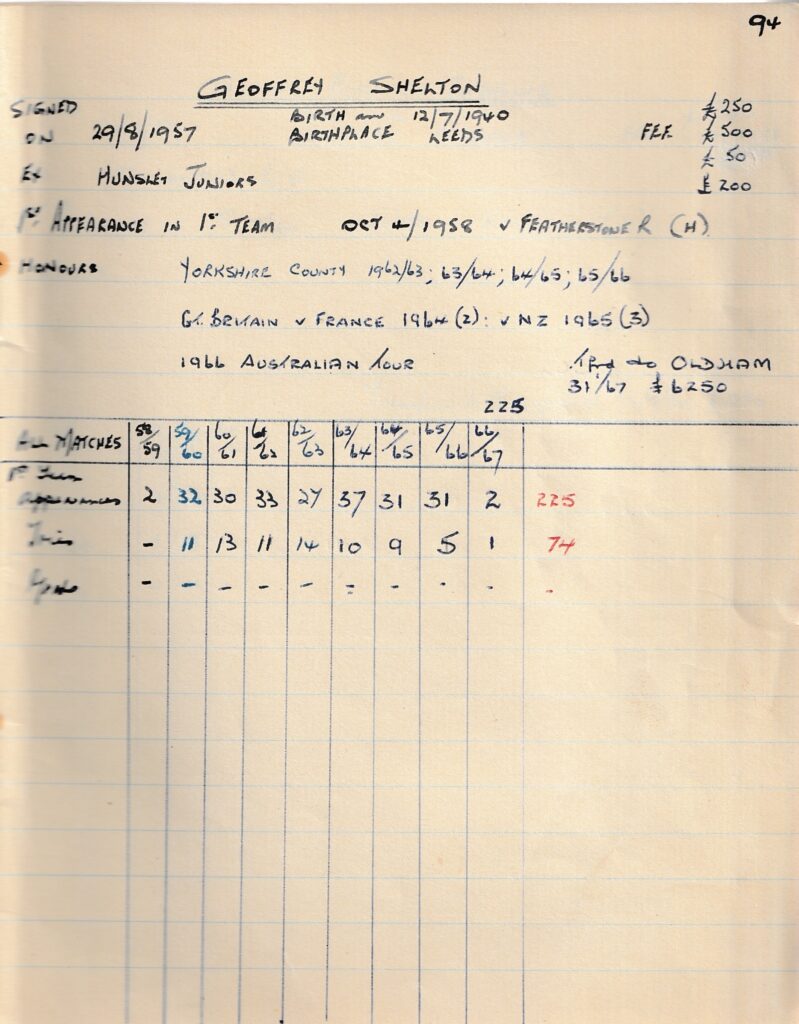 94
GEOFFREY SHELTON
SIGNED ON 29/8/1957 BIRTH AND BIRTHPLACE 12/7/1940 LEEDS FEE £250 £500 £50 £200
EX HUNSLET JUNIORS
1ST APPEARANCE IN 1ST TEAM OCT 4/1958 v FEATHERSTONE R (H)
HONOURS YORKSHIRE COUNTY 1962/63; 63/64; 64/65; 65/66
GT. BRITAIN v FRANCE 1964 (2): v NZ 1965 (3)
1966 AUSTRALIAN TOUR
to OLDHAM
£6250
225
ALL MATCHES 58/59 59/60 60/61 61/62 62/63 63/64 64/65 65/66 66/67
1st Team
Appearances 2 32 30 33 27 37 31 31 2 225
Tries - 11 13 11 14 10 9 5 1 74
Goals - - - - - - - - - -